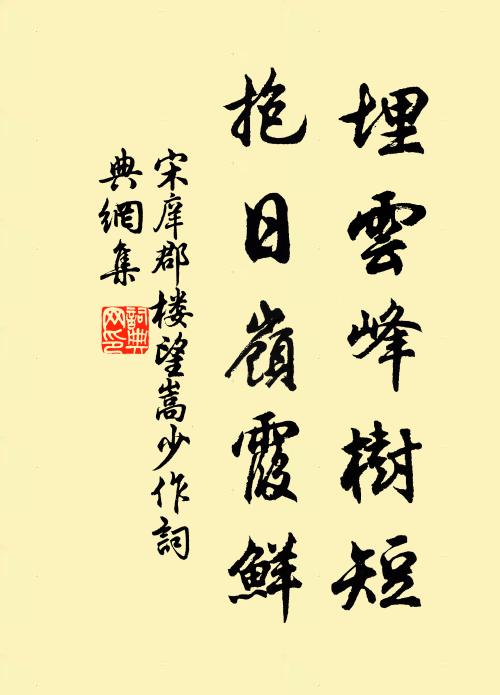 埋雲峰樹短
抱日嶺霞鮮
宋庠郡楼望嵩少作詞
典網集
詞典
网印